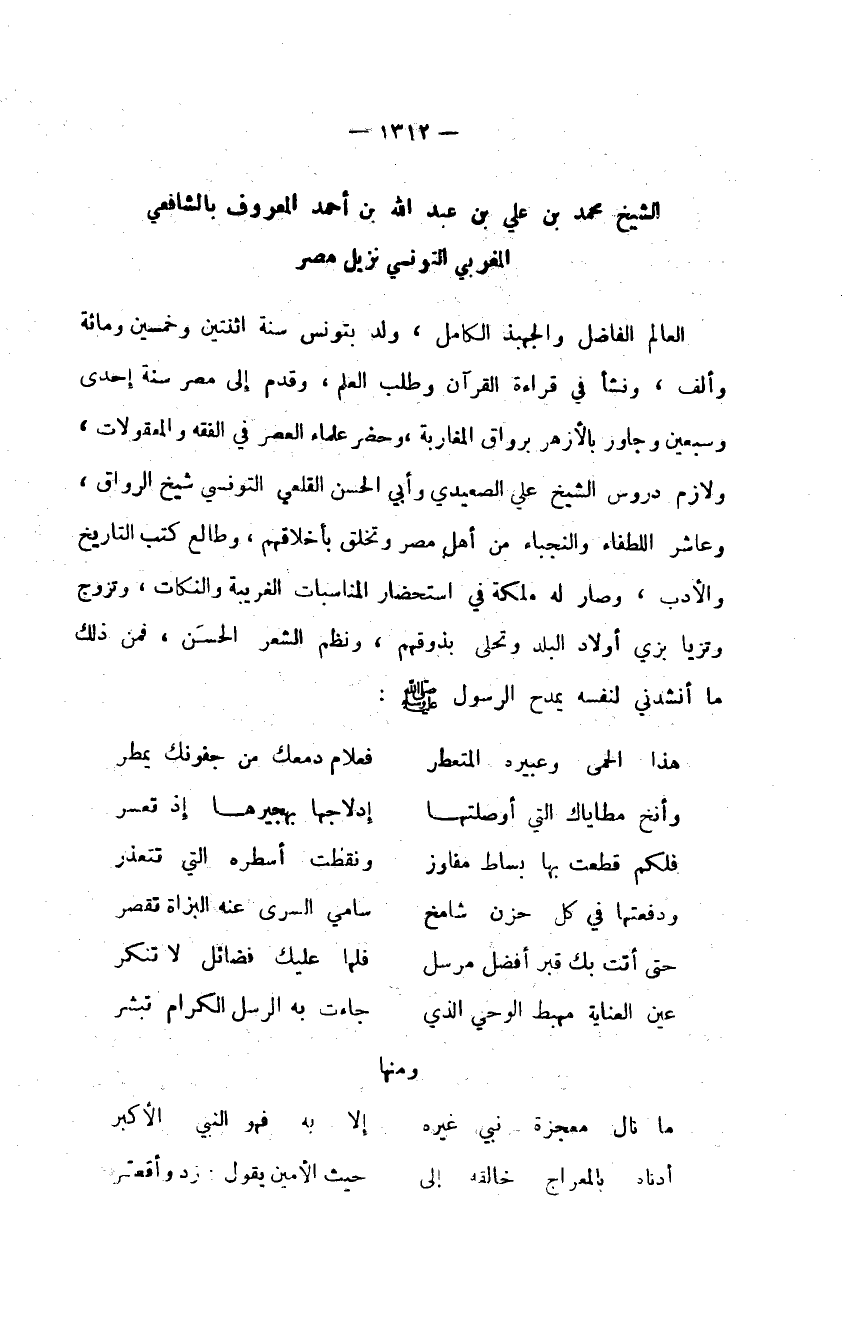 — ١٣١٢ —
الشيخ محمد بن علي بن عبد الله بن أحمد المعروف بالشافعي
المغربي التونسي نزيل مصر
العالم الفاضل والجهبذ الكامل ، ولد بتونس سنة اثنتين وخمسين ومائة
وألف ، ونشأ في قراءة القرآن وطلب العلم ، وقدم إلى مصر سنة إحدى
وسبعين وجاور بالأزهر برواق المغاربة ، وحضر علماء العصر في الفقه والمعقولات ،
ولازم دروس الشيخ علي الصعيدي وأبي الحسن القلعي التونسي شيخ الرواق ،
وعاشر اللطفاء والنجباء من أهل مصر وتخلق بأخلاقهم ، وطالع كتب التاريخ
والأدب ، وصار له ملكة في استحضار المناسبات الغريبة والنكات ، وتزوج
وتزيا بزي أولاد البلد وتحلى بذوقهم ، ونظم الشعر الحسَن ، فمن ذلك
ما أنشدني لنفسه يمدح الرسول ﷺ :
هذا الحمى وعبيره المتعطر فعلام دمعك من جفونك يمطر
وأنخ مطاياك التي أوصلتهـا إدلاجها بهجيرهـا إذ تعسر
فلكم قطعت بها بساط مفاوز ونقطت أسطره التي تتعذر
ودفعتها في كل حزن شامخ سامي السرى عنه البزاة تقصر
حتى أتت بك قبر أفضل مرسل فلها عليك فضائل لا تنكر
عين العناية مهبط الوحي الذي جاءت به الرسل الكرام تبشر
ومنها
ما نال معجزة نبي غيره إلا به فهو النبي الأكبر
أدناه بالمعراج خالقه إلى حيث الأمين يقول : زد وأقصر